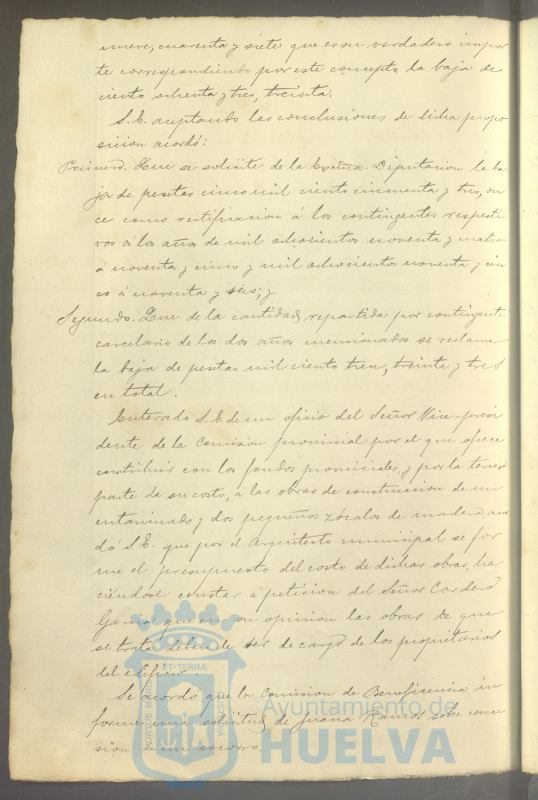 nueve, cuarenta y siete que es su verdadero impor
te correspondiendo por este concepto la baja de
ciento ochenta y tres, treinta.
S.E. aceptando las conclusiones de dicha propo
sicion acordó:
Primero. Que se solicite de la Excma. Diputacion la ba
ja de pesetas cinco mil ciento cincuenta y tres, on
ce como rectificacion á los contingentes respecti
vos á los años de mil ochocientos noventa y cuatro
á noventa y cinco y mil ochocientos noventa y cin
co á noventa y seis; y
Segundo. Que de la cantidad repartida por contingente
carcelario de los dos años mencionados se reclame
la baja de pesetas mil ciento trece, treinta y tres
en total.
Enterado S.E. de un oficio del Señor Vice-presi
dente de la Comision provincial por el que ofrece
contribuir con los fondos provinciales, y por la tercera
parte de su costo, á las obras de construccion de un
entarimado y dos pequeños zócalos de madera, acor
dó S.E. que por el Arquitecto municipal se for
me el presupuesto del costo de dichas obras, ha
ciéndose constar á peticion del Señor Cordero
Garcia que en su opinion las obras de que
se trata deben de ser de cargo de los propietarios
del edificio.
Se acordó que la Comision de Beneficencia in
forme una solicitud de Juana Ramos sobre conce
sion de un socorro.
ET TERRÆ
PORTUS MARIS
CUSTODIA
Ayuntamiento de
HUELVA